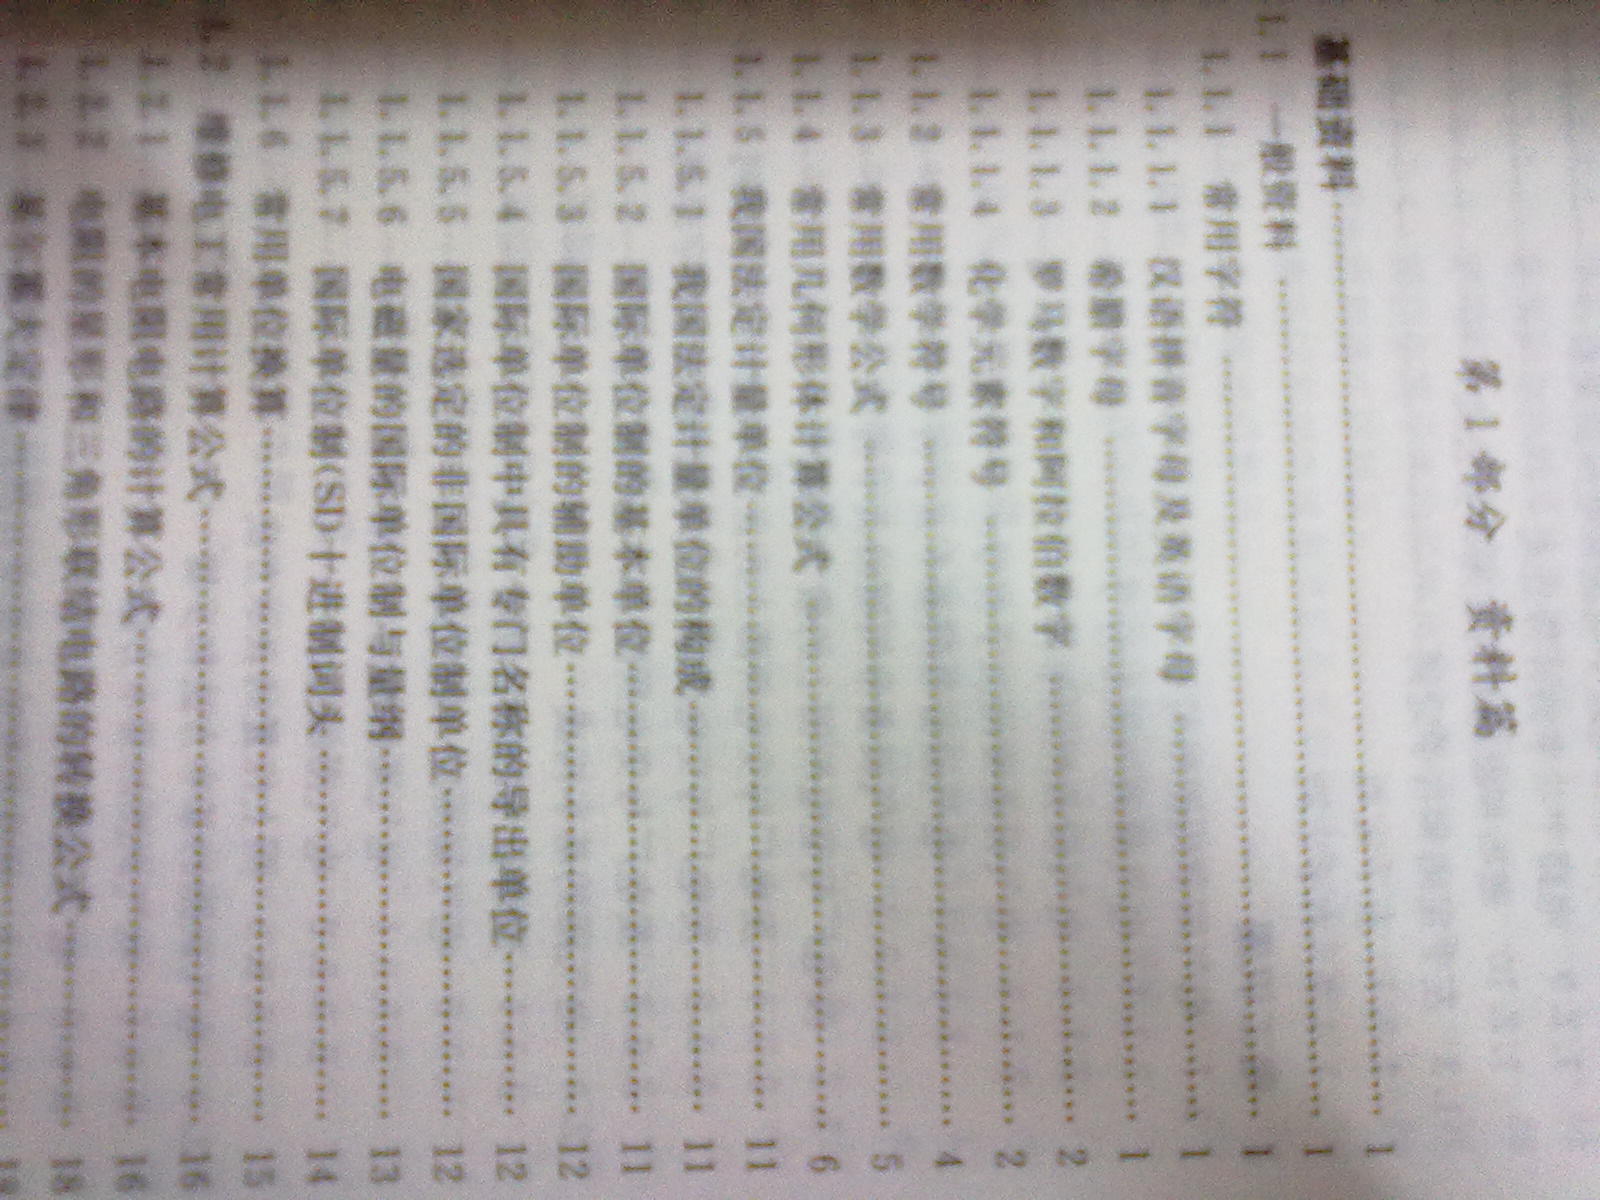 第1部分 资料篇
基础资料 1
1.1 一般资料 1
1.1.1 常用字符 1
1.1.1.1 汉语拼音字母及英语字母 1
1.1.1.2 希腊字母 1
1.1.1.3 罗马数字和阿拉伯数字 2
1.1.1.4 化学元素符号 2
1.1.2 常用数学符号 4
1.1.3 常用数学公式 5
1.1.4 常用几何形体计算公式 6
1.1.5 我国法定计量单位 11
1.1.5.1 我国法定计量单位的构成 11
1.1.5.2 国际单位制的基本单位 11
1.1.5.3 国际单位制的辅助单位 12
1.1.5.4 国际单位制中具有专门名称的导出单位 12
1.1.5.5 国家选定的非国际单位制单位 12
1.1.5.6 电磁量的国际单位制与量纲 13
1.1.5.7 国际单位制(SI)十进制词头 14
1.1.6 常用单位换算 15
1.2 维修电工常用计算公式 16
1.2.1 基本电阻电路的计算公式 16
1.2.2 电阻的星形和三角形联结电路的转换公式 18